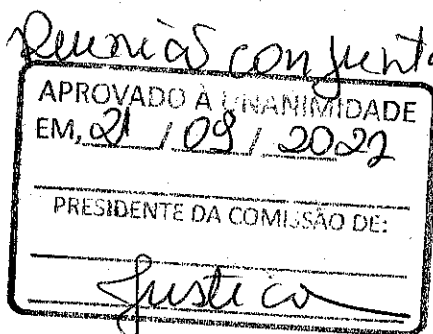 Reunião conjunta
APROVADO À UNANIMIDADE
EM, 21 / 09 / 2022
PRESIDENTE DA COMISSÃO DE:
Justiça